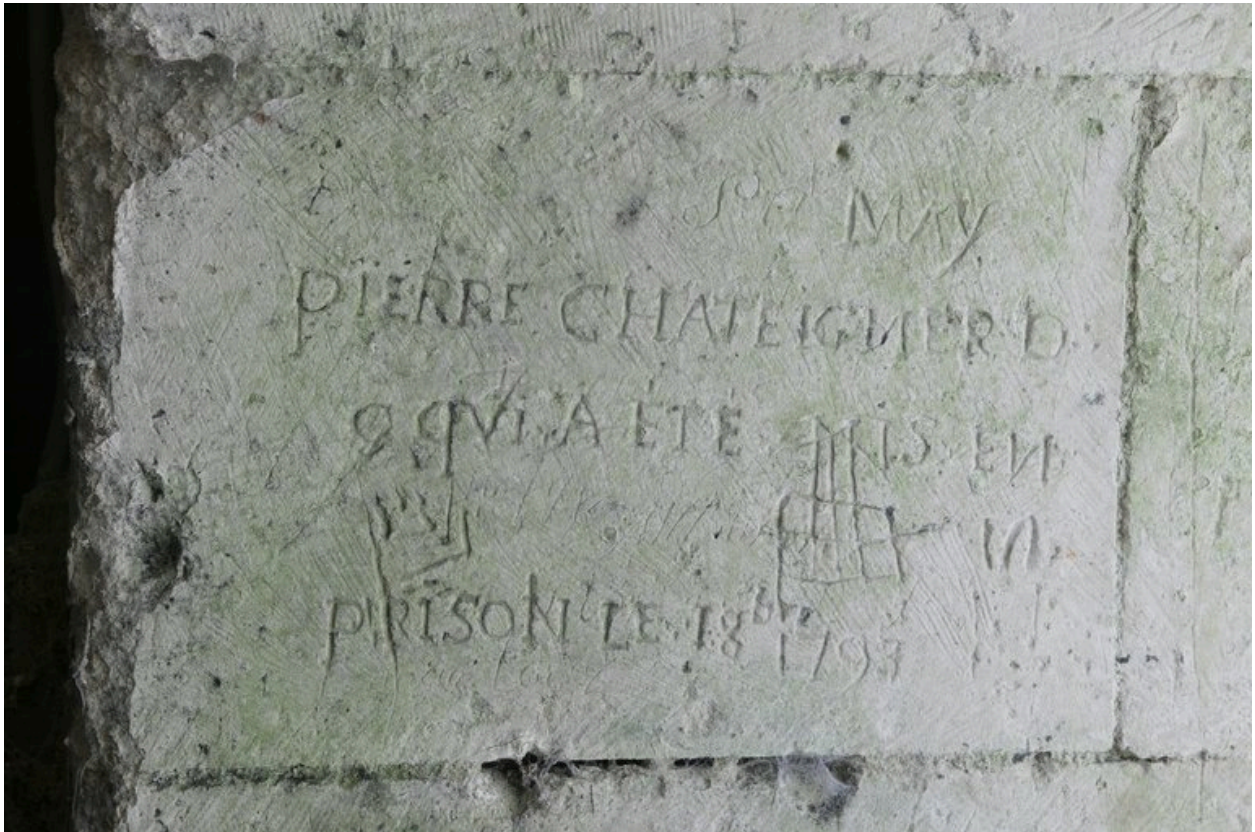 MAY
PIERRE CHATEIGNER D
QUI A ETE MIS EN
N
PRISON LE 18bre 1793